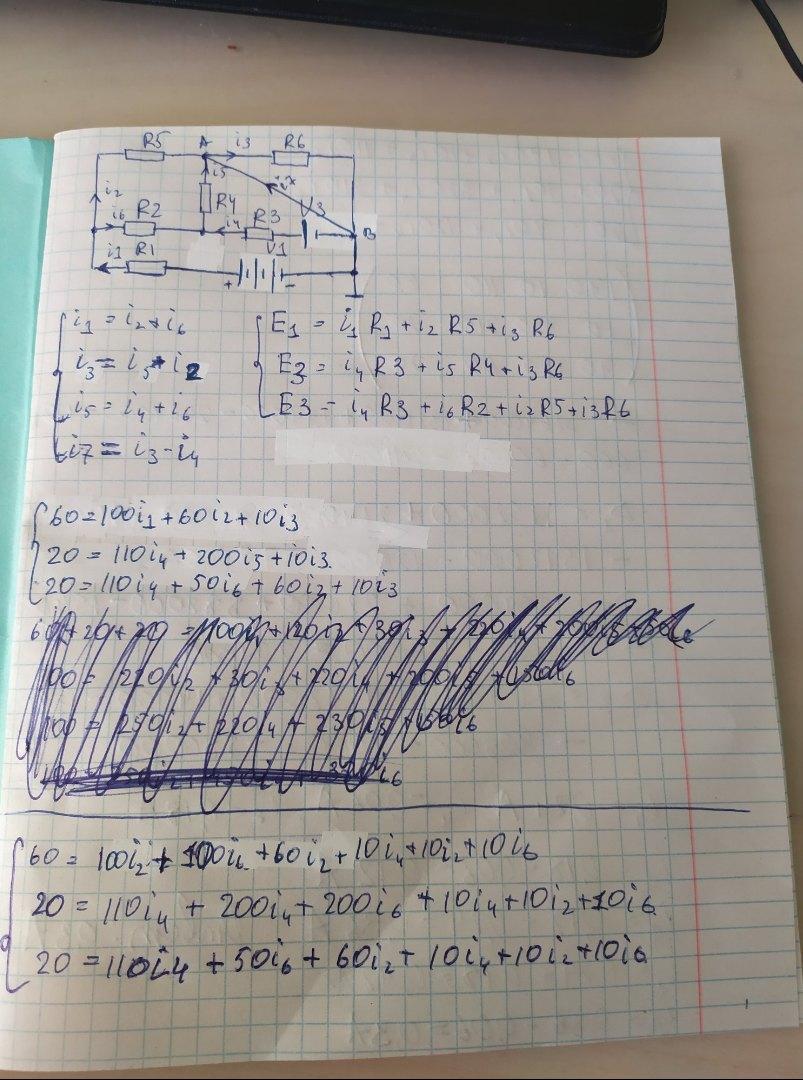 R5 A i3 R6
i2 i5 R4 i7
i6 R2 i4 R3 V3 B
i1 R1 V1
+ -
i1 = i2 + i6 E1 = i1 R1 + i2 R5 + i3 R6
i3 = i5 + i2 E3 = i4 R3 + i5 R4 + i3 R6
i5 = i4 + i6 E3 = i4 R3 + i6 R2 + i2 R5 + i3 R6
i7 = i3 - i4
60 = 100i1 + 60i2 + 10i3
20 = 110i4 + 200i5 + 10i3
20 = 110i4 + 50i6 + 60i2 + 10i3
60 = 100i2 + 100i6 + 60i2 + 10i4 + 10i2 + 10i6
20 = 110i4 + 200i4 + 200i6 + 10i4 + 10i2 + 10i6
20 = 110i4 + 50i6 + 60i2 + 10i4 + 10i2 + 10i6